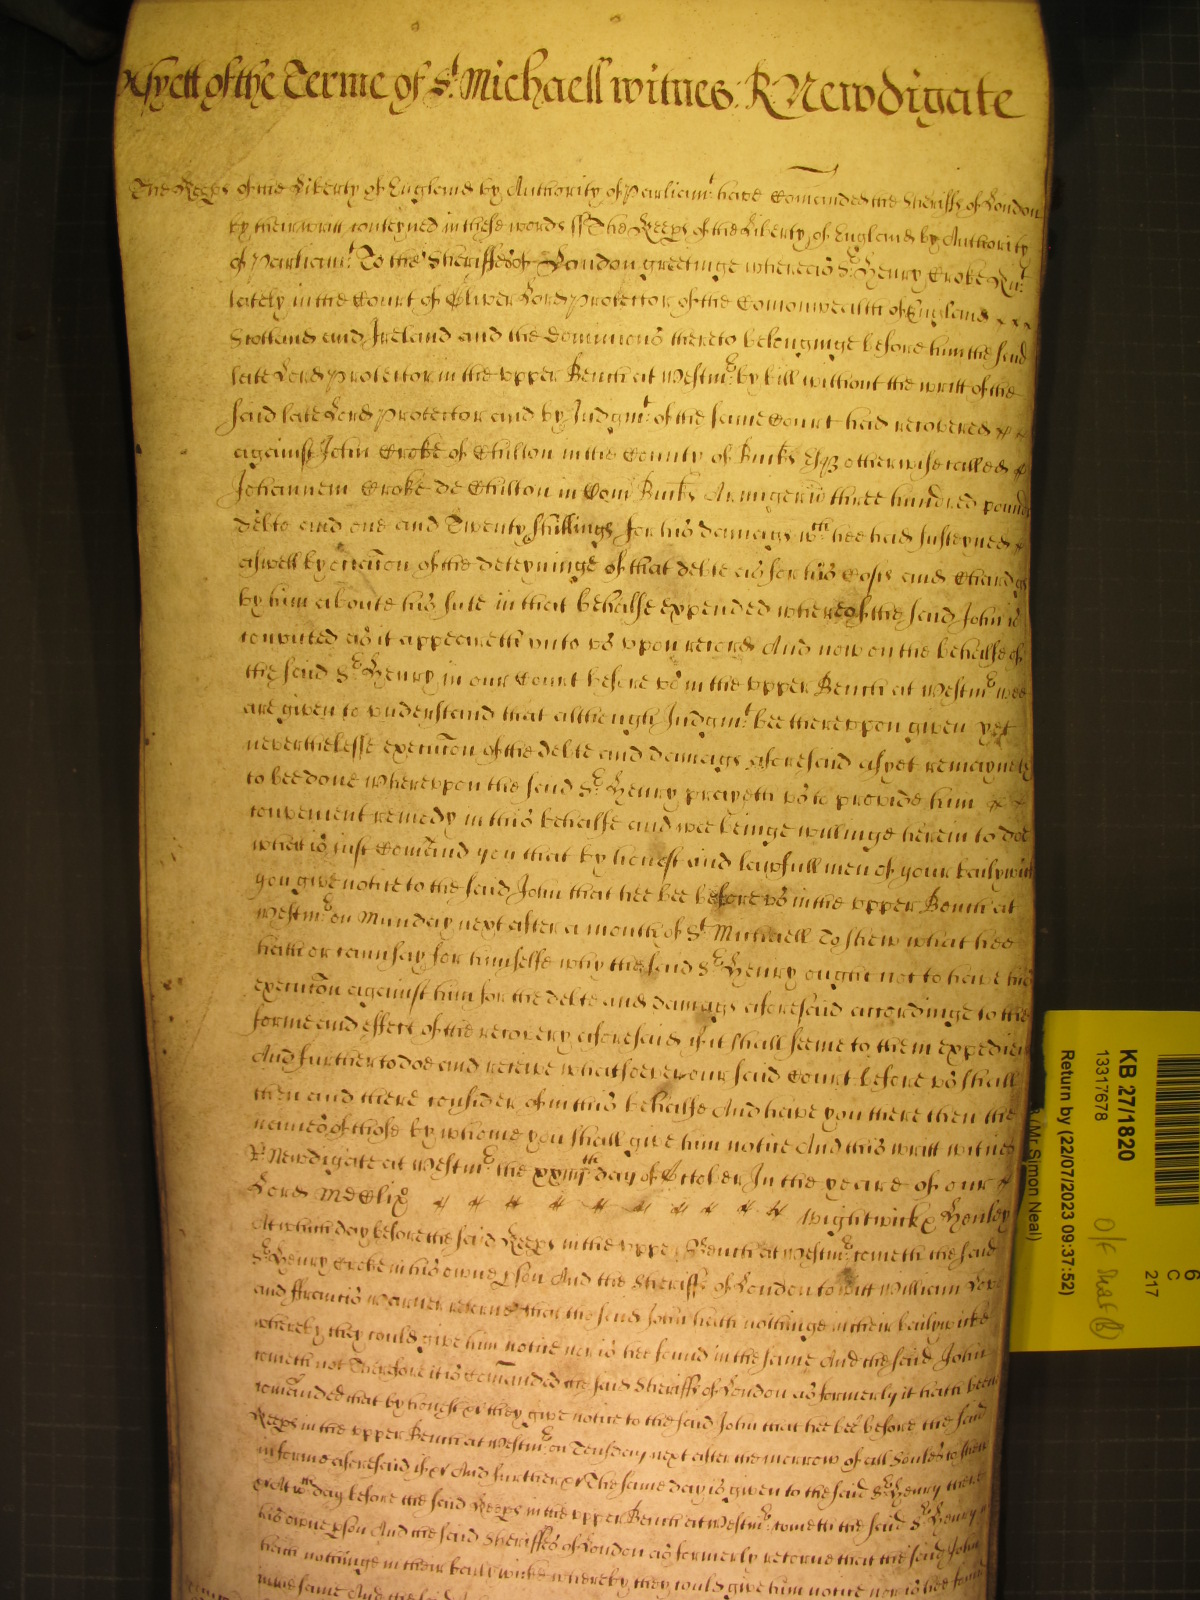 of the Terme of St. Michaell witnes. R Newdigate
The Keeps of the Liberty of England by Authority of Parliamt. have Comanded the Sheriffs of London
by their writt conteyned in these words ss The Keeps of the Liberty of England by Authority
of Parliamt. To the Sheriffes of London greetinge whereas Sr. Henry Croke Knt.
lately in the Court of Oliver Lord Protector of the Comonwealth of England x x x
Scotland and Ireland and the dominions thereto belonginge before him the said
late Lord Protector in the vpper Bench at Westmr. by bill without the writt of the
said late Lord Protector and by Judgmt. of the same Court had recovered x x
against John Croke of Chilton in the County of Bucks Esq otherwise called x
Johannem Croke de Chilton in Com Bucks Armigerū three hundred pounds
debte and one and Twenty shillings for his damags wch. hee had susteyned x
aswell by occacon of the deteyninge of that debte as for his Costs and Chardgs
by him aboute his sute in that behalfe expended whereof the said John is
convicted as it appeareth vnto vs vpon record And now on the behalfe of
the said Sr. Henry in our Court before vs in the vpper Bench at Westmr. wee
are given to vnderstand that although Judgmt. bee therevpon given yet
neverthelesse execucon of the debte and damags aforesaid as yet remayneth
to bee done wherevpon the said Sr. Henry prayeth vs to provide him x x
convenient remedy in this behalfe and wee beinge willinge herein to doe
what is iust Comand you that by honest and lawfull men of your bailywick
you give notice to the said John that hee bee before vs in the vpper Bench at
Westmr. on Munday next after a month of St. Michaell To shew what hee
hath or cann say for himselfe why the said Sr. Henry ought not to have his
execucon against him for the debte and damags aforesaid accordinge to the
forme and effect of the recovery aforesaid if it shall seeme to them expedient
And further to doe and receive whatsoever our said Court before vs shall
then and there consider of in this behalfe And have you there then the
names of those by whome you shall give him notice And this writt witnes
R. Newdigate at Westmr. the xxiiijth day of October In the yeare of our x
Lord MDClix x x x x x x x x x Wightwick & Henley
At which day before the said Keeps in the vpper Bench at Westmr. cometh the said
Sr. Henry Croke in his owne pson And the Sheriffs of London to witt William
and ffrancis Warner retorne that the said John hath nothinge in their bailywicke
whereby they could give him notice nor is hee found in the same And the said John
cometh not Therefore it is Comanded the said Sheriffs of London as formerly it hath been
comanded that by honest xc they give notice to the said John that hee bee before the said
Keeps in the vpper Bench at Westmr. on Teusday next after the morrow of all Soules to shew
in forme aforesaid if xc And further xc The same day is given to the said Sr. Henry there
xc At wch day before the said Keeps in the vpper Bench at Westmr. cometh the said Sr. Henry in
his owne pson And the said Sheriffes of London as formerly retorne that the said John
hath nothinge in their bailywicke whereby they could give him notice nor is hee found
in the same And the said
KB 27/1820
13317678
Return by (22/07/2023 09:37:52)
(Mr Simon Neal)
6
C
217